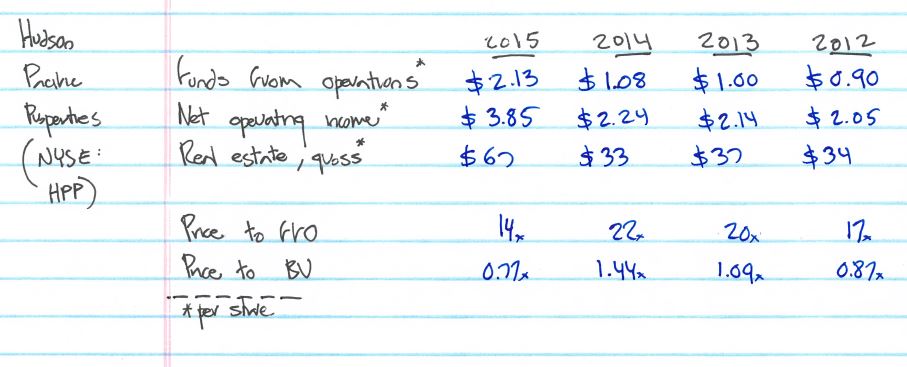 Hudson 2015 2014 2013 2012
Pacific Funds from operations* $2.13 $1.08 $1.00 $0.90
Properties Net operating income* $3.85 $2.24 $2.14 $2.05
(NYSE: Real estate, gross* $67 $33 $37 $34
HPP)
Price to FFO 14x 22x 20x 17x
Price to BV 0.77x 1.44x 1.09x 0.87x
* per share